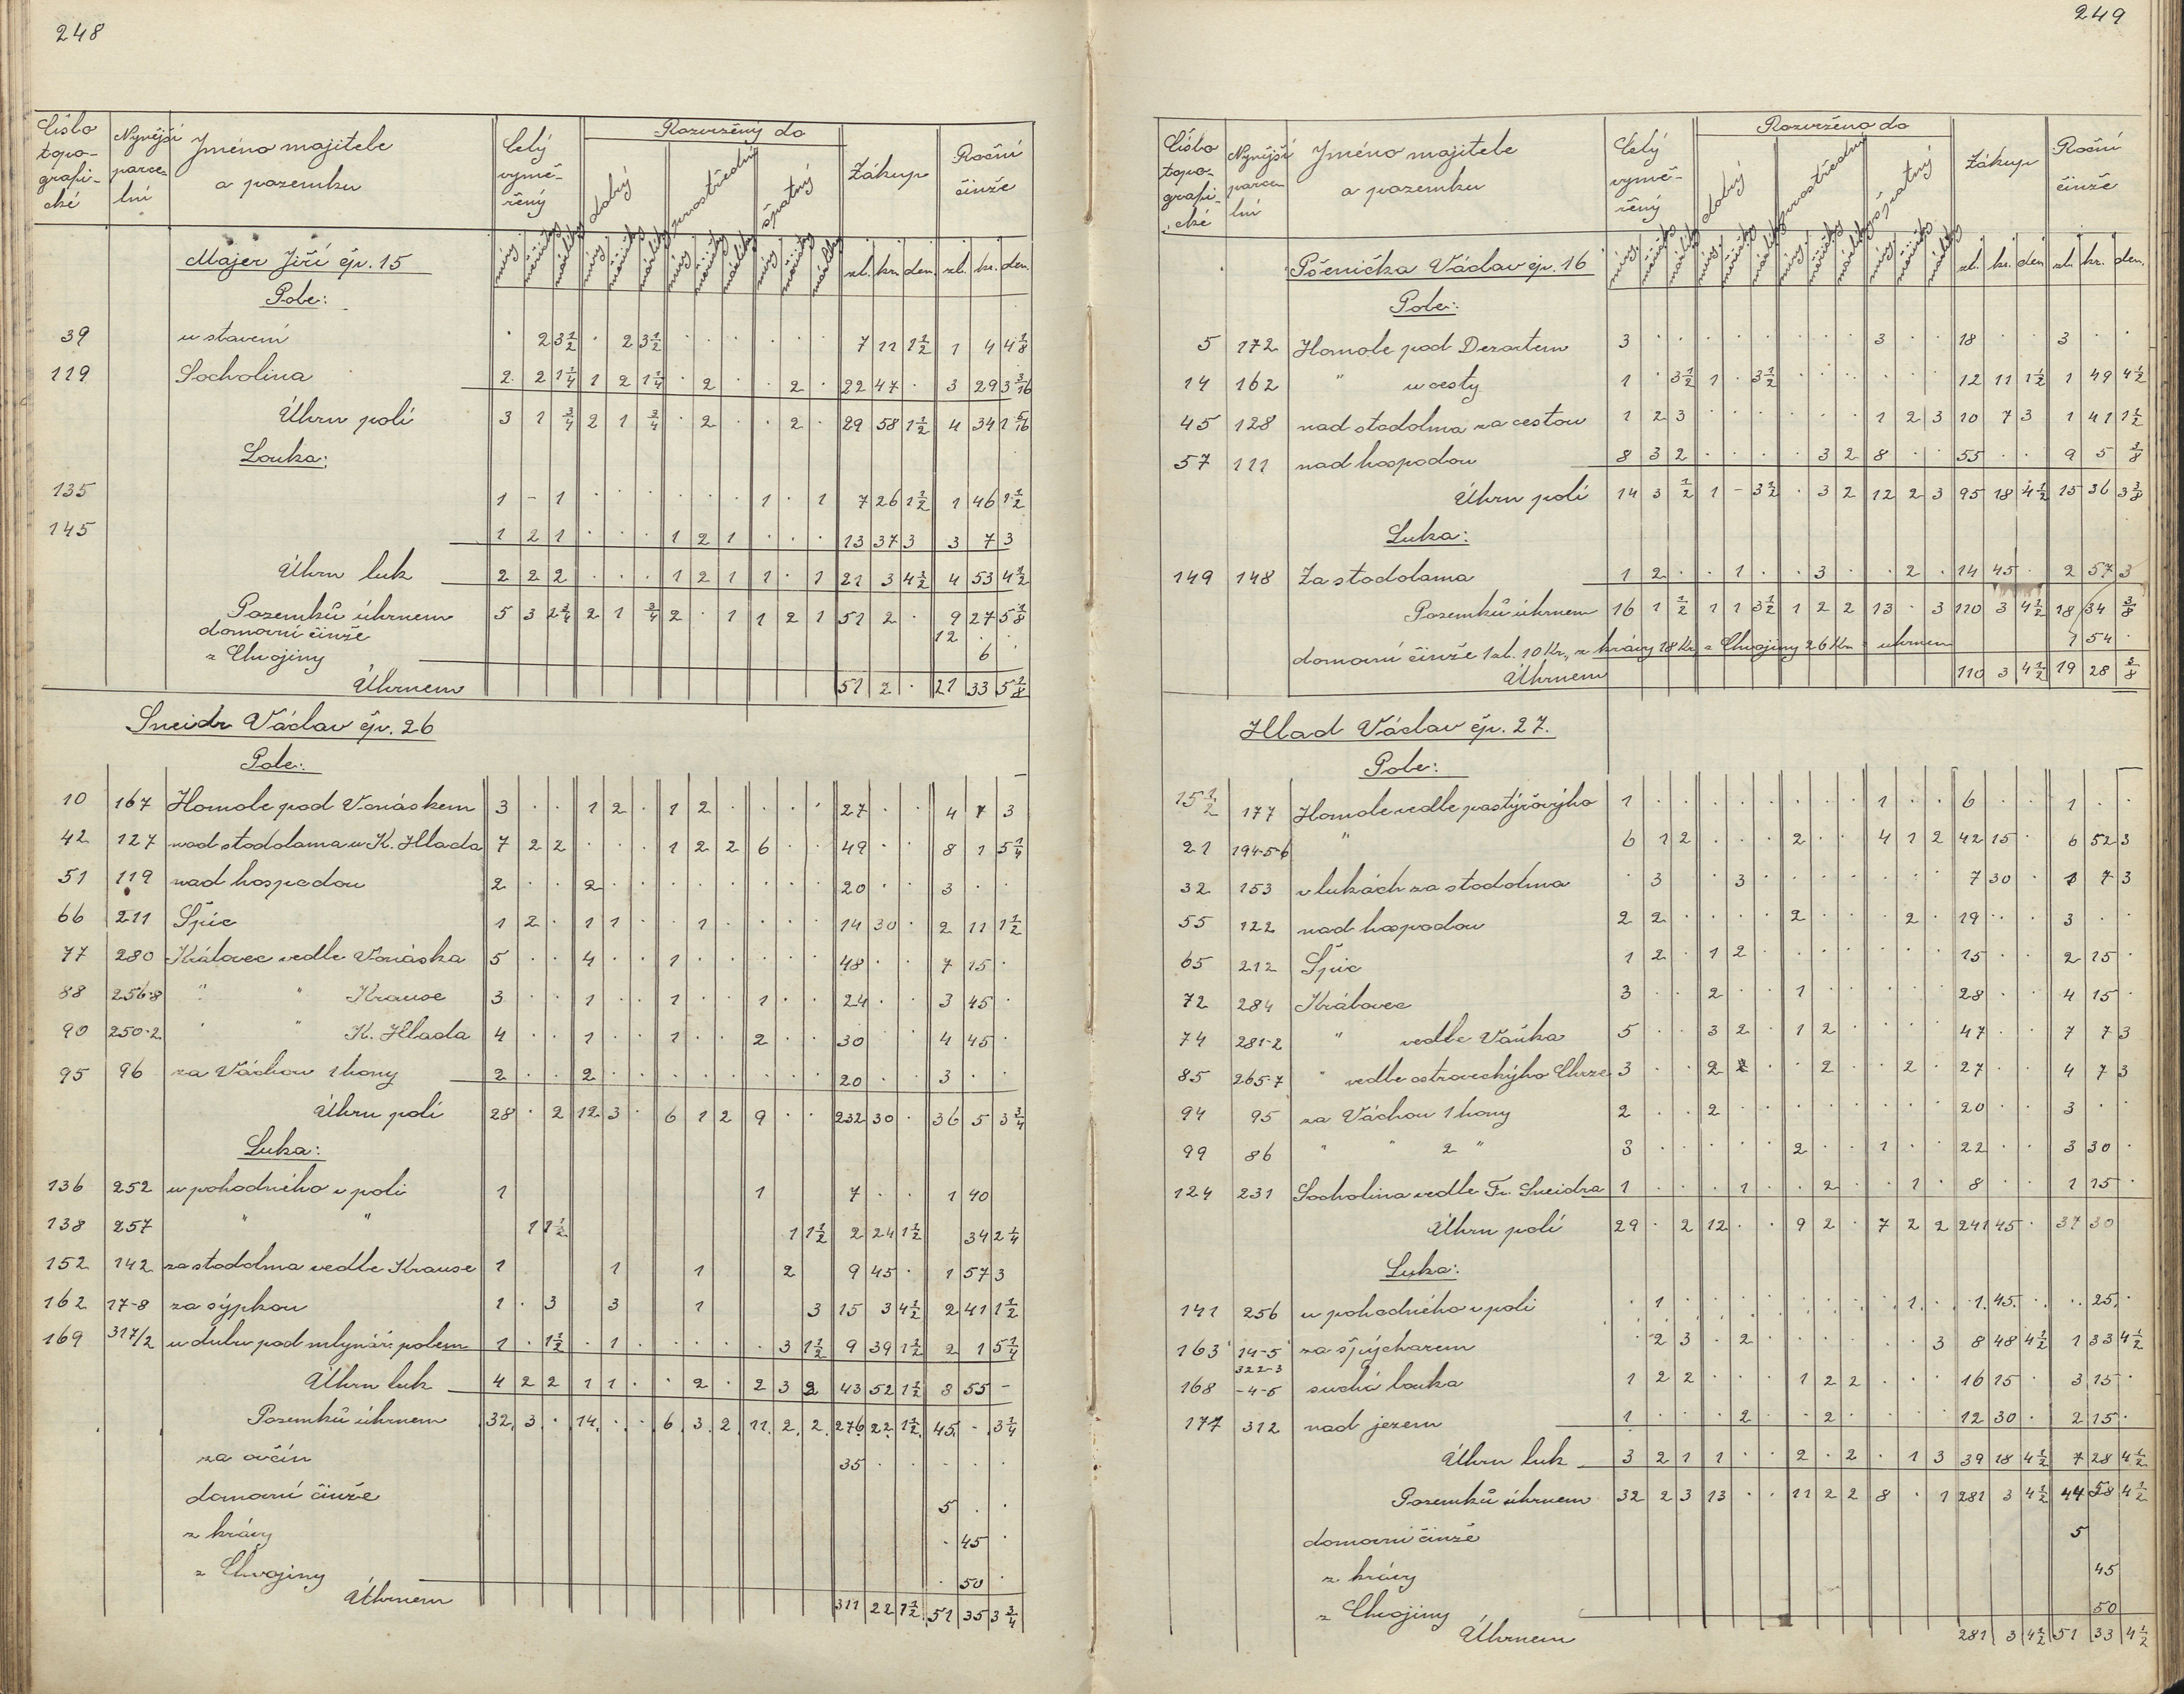 248
Číslo topo- grafi- cké | Nynější parce- lní | Jméno majitele a pozemku | Celý vymě- řený | Rozvržený do | dobrý | prostřední | špatný | Zákup | Roční činže
Majer Jiří čp. 15 | zl. | kr. | den. | zl. | kr. | den.
Pole:
39 u stavení · 2 3½ · 2 3½ · · · · · · 7 11 1½ 1 4 4⅛
119 Socholina 2 2 1¼ 1 2 1¼ · 2 · · 2 · 22 47 · 3 29 3 3/16
Úhrn polí 3 1 ¾ 2 1 ¾ · 2 · · 2 · 29 58 1½ 4 34 1 5/16
Louka:
135 1 - 1 · · · · · · 1 · 1 7 26 1½ 1 46 1½
145 1 2 1 · · · 1 2 1 · · · 13 37 3 3 7 3
Úhrn luk 2 2 2 · · · 1 2 1 1 · 1 21 3 4½ 4 53 4½
Pozemků úhrnem 5 3 2¾ 2 1 ¾ 2 · 1 1 2 1 51 2 · 9 27 5⅛
domovní činže 12 · ·
z Chvojiny 6 ·
Úhrnem 51 2 · 21 33 5⅛
Sneidr Václav čp. 26
Pole:
10 167 Homole pod Vonáskem 3 · · 1 2 · 1 2 · · · · 27 · · 4 7 3
42 127 nad stodolama u K. Hlada 7 2 2 · · · 1 2 2 6 · · 49 · · 8 1 5¼
51 119 nad hospodou 2 · · 2 · · · · · · · · 20 · · 3 · ·
66 211 Špic 1 2 · 1 1 · · 1 · · · · 14 30 · 2 11 1½
77 280 Královec vedle Vonáska 5 · · 4 · · 1 · · · · · 48 · · 7 15 ·
88 256-8 " " Krause 3 · · 1 · · 1 · · 1 · · 24 · · 3 45 ·
90 250-2 " " K. Hlada 4 · · 1 · · 1 · · 2 · · 30 4 45 ·
95 96 za Váchou 1 hony 2 · · 2 · · · · · · · · 20 · · 3 · ·
Úhrn polí 28 · 2 12 3 · 6 1 2 9 · · 232 30 · 36 5 3¾
Luka:
136 252 u pohodného v poli 1 1 7 · · 1 40
138 257 " " 1 1½ 1 1½ 2 24 1½ 34 2¼
152 142 za stodolma vedle Krause 1 1 1 2 9 45 · 1 57 3
162 17-8 za sýpkou 1 · 3 3 1 3 15 3 4½ 2 41 1½
169 317/2 u dubu pod mlynář. polem 1 · 1½ · 1 · · · · · 3 1½ 9 39 1½ 2 1 5¼
Úhrn luk 4 2 2 1 1 · · 2 · 2 3 2 43 52 1½ 8 55 -
Pozemků úhrnem 32 3 · 14 · · 6 3 2 11 2 2 276 22 1½ 45 - 3¾
za ovčín 35 · · · · ·
domovní činže 5 · ·
z krávy · 45 ·
z Chvojiny · 50 ·
Úhrnem 311 22 1½ 51 35 3¾
249
Číslo topo- grafi- cké | Nynější parce- lní | Jméno majitele a pozemku | Celý vymě- řený | Rozvrženo do | dobrý | prostřední | špatný | Zákup | Roční činže
Pšenička Václav čp. 16 | zl. | kr. | den | zl. | kr. | den.
Pole:
5 172 Homole pod Dezortem 3 · · · · · · · · 3 · · 18 · · 3 · ·
14 162 " u cesty 1 · 3½ 1 · 3½ · · · · · · 12 11 1½ 1 49 4½
45 128 nad stodolma za cestou 1 2 3 · · · · · · 1 2 3 10 7 3 1 41 1½
57 111 nad hospodou 8 3 2 · · · · 3 2 8 · · 55 · · 9 5 ⅜
Úhrn polí 14 3 ½ 1 - 3½ · 3 2 12 2 3 95 18 4½ 15 36 3⅜
Luka:
149 148 Za stodolama 1 2 · · 1 · · 3 · · 2 · 14 45 · 2 57 3
Pozemků úhrnem 16 1 ½ 1 1 3½ 1 2 2 13 · 3 110 3 4½ 18 34 ⅜
domovní činže 1 zl. 10 Kr., z krávy 18 Kr, z Chvojiny 26 Kr = uhrnem 1 54 ·
Úhrnem 110 3 4½ 19 28 ⅜
Hlad Václav čp. 27.
Pole:
15½ 177 Homole vedle pastýřovýho 1 · · · · · · · · 1 · · 6 · · 1 · ·
21 194-5-6 " 6 1 2 · · · 2 · · 4 1 2 42 15 · 6 52 3
32 153 v lukách za stodolma · 3 · · 3 · · · · · · · 7 30 · 1 7 3
55 122 nad hospodou 2 2 · · · · 2 · · · 2 · 19 · · 3 · ·
65 212 Špic 1 2 · 1 2 · · · · · · · 15 · · 2 15 ·
72 284 Královec 3 · · 2 · · 1 · · · · · 28 · · 4 15 ·
74 281-2 " vedle Vaňka 5 · · 3 2 · 1 2 · · · · 47 · · 7 7 3
85 265-7 " vedle ostroveckýho Chrze 3 · · 2 · · 2 · · 2 · 27 · · 4 7 3
94 95 za Váchou 1 hony 2 · · 2 · · · · · · · · 20 · · 3 · ·
99 86 " " 2 " 3 · · · · · 2 · · 1 · · 22 · · 3 30 ·
124 231 Socholina vedle Fr. Sneidra 1 · · · 1 · · 2 · · 1 · 8 · · 1 15 ·
Úhrn polí 29 · 2 12 · · 9 2 · 7 2 2 241 45 · 37 30
Luka:
141 256 u pohodného v poli · 1 · · · · · · · · 1 · 1 45 · · 25 ·
163 14-5 za špýcharem · 2 3 · 2 · · · · · · 3 8 48 4½ 1 33 4½
168 322-3 -4-5 suchá louka 1 2 2 · · · 1 2 2 · · · 16 15 · 3 15 ·
177 312 nad jezem 1 · · · 2 · · 2 · · · · 12 30 · 2 15 ·
Úhrn luk 3 2 1 1 · · 2 · 2 · 1 3 39 18 4½ 7 28 4½
Pozemků úhrnem 32 2 3 13 · · 11 2 2 8 · 1 281 3 4½ 44 58 4½
domovni činže 5
z krávy 45
z Chvojiny 50
Úhrnem 281 3 4½ 51 33 4½